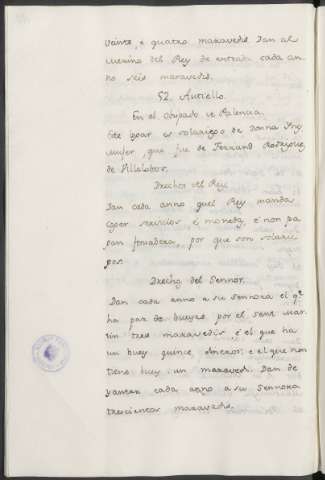 veinte, e quatro maravedis. Dan al
merino del Rey de entrada cada an-
no seis maravedis.
52. Autiello.
En el obispado de Palencia.
Este logar es solariego de Donna
muger, que fue de Ferrand Rodriguez
de Villalobos.
Drechos del Rey.
Dan cada anno quel Rey manda
coger servicios e moneda, e non pa
gan fonsadera, por que son solarie
gos.
Drechos del Sennor.
Dan cada anno a su sennora el q.e
ha par de bueyes por el sent Mar
tin tres maravedis, e el que ha
un buey quince dineros, e el que non
tiene buey un maravedi. Dan de
yantar cada anno a su Sennora
trescientos maravedis.